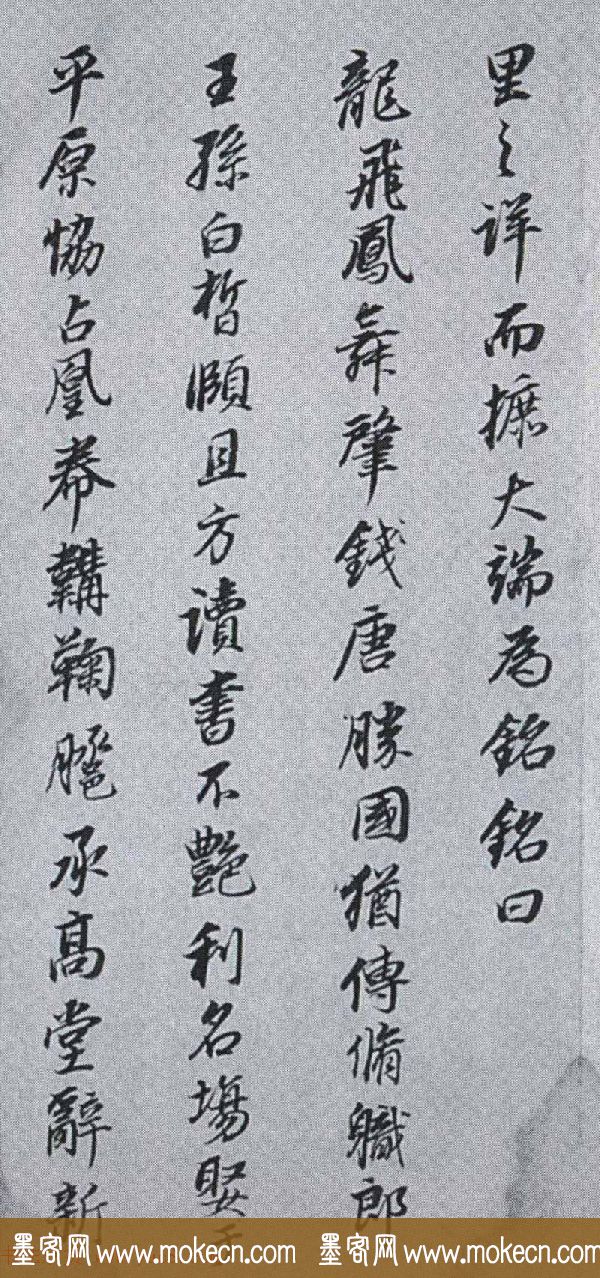 里之详而摭大端为铭铭曰
龍飛鳳舞肇錢唐勝國猶傳脩職郎
王孫白皙頎且方讀書不艷利名場娶
平原恊占凰奉鞲鞠䠆承高堂辭新
墨客网 www.mokecn.com 墨客网 www.mokecn.com